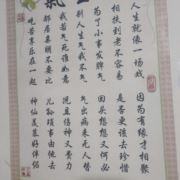 氣
人生就像一场戏
因为有缘才相聚
相扶到老不容易
是否更该去珍惜
为了小事发脾气
回头想想又何必
人生气我不气
气出病来无人替
我若气死谁如意
况且伤神又费力
邻居亲朋不要比
儿孙琐事由他去
吃苦享乐在一起
神仙羡慕好伴侣